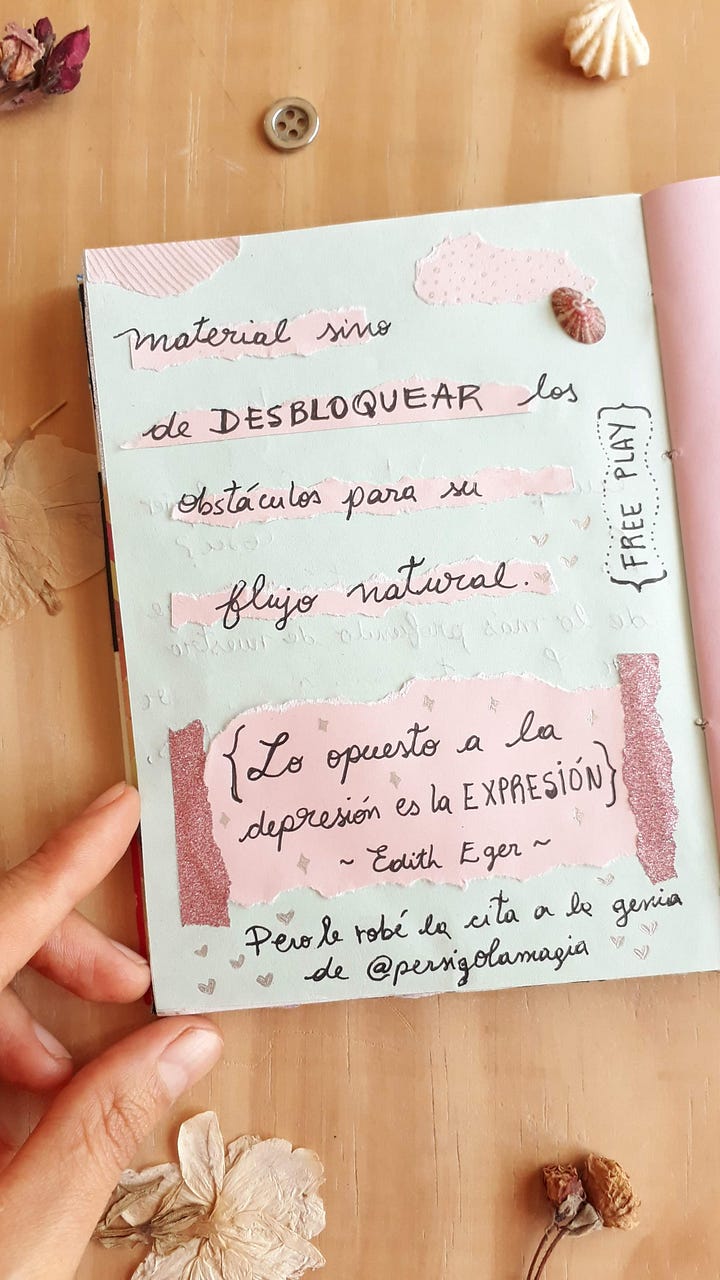 material sino
de DESBLOQUEAR los
obstáculos para su
flujo natural.
{FREE PLAY}
{Lo opuesto a la
depresión es la EXPRESIÓN}
~ Edith Eger ~
Pero le robé la cita a la genia
de @persigolamagia